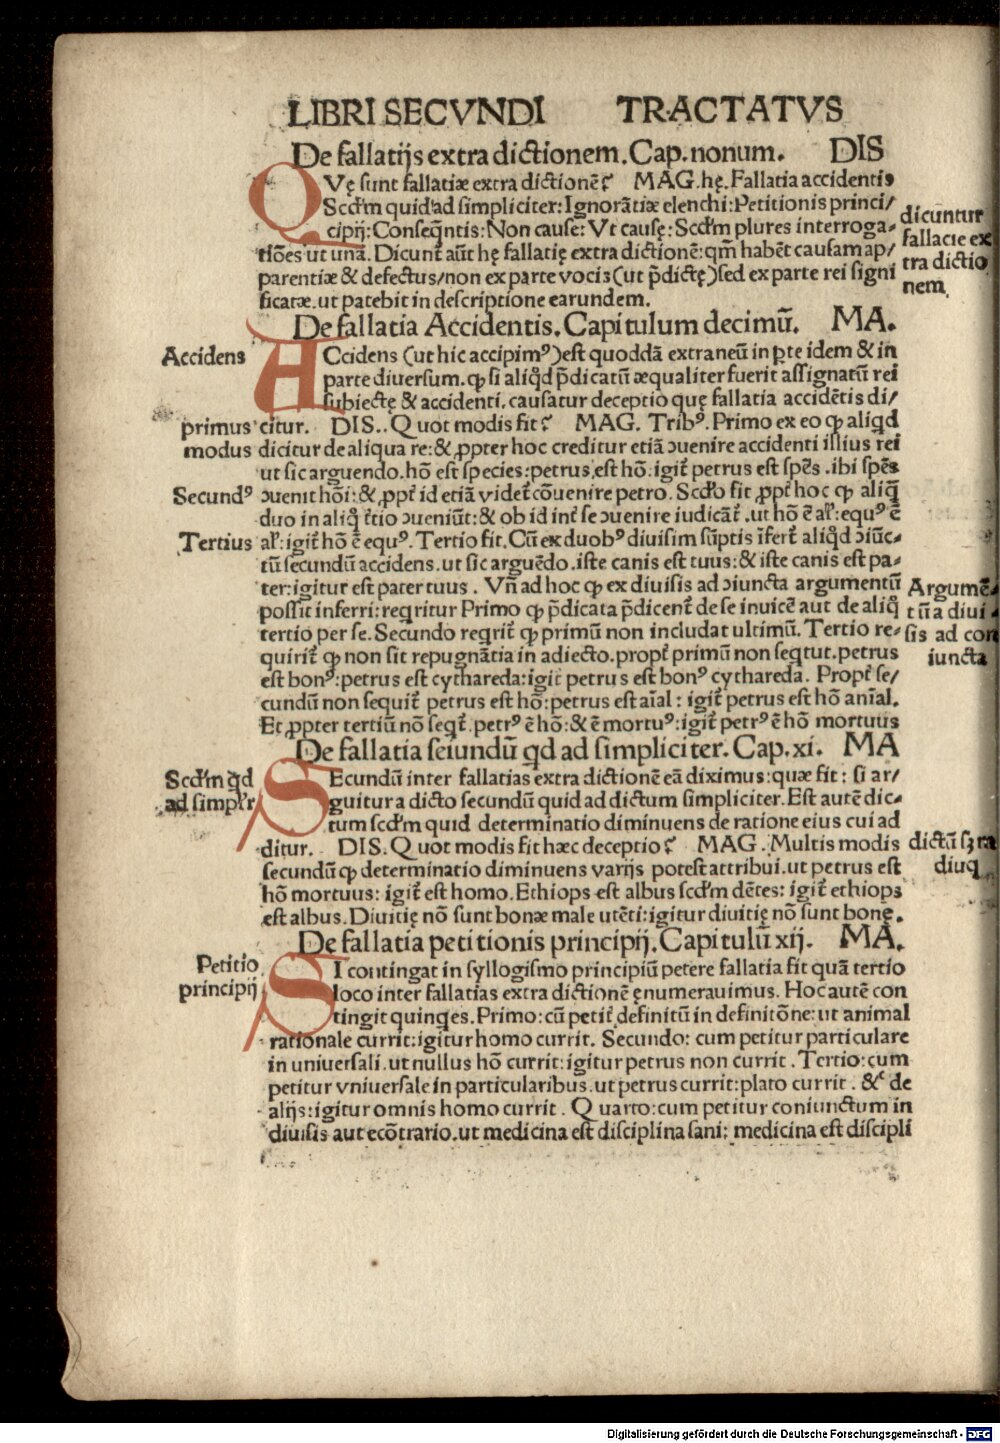 LIBRI SECVNDI TRACTATVS
De fallatijs extra dictionem. Cap. nonum. DIS
QVę sunt fallatiæ extra dictionē? MAG. hę. Fallatia accidentis
Scd'm quid ad simpliciter: Ignorātiæ elenchi: Petitionis princi/
cipij: Conseq̄ntis: Non cause: Vt causę: Scd'm plures interroga-
tiōes ut unā. Dicunt̄ aūt hę fallatię extra dictionē: qm̄ habēt causam ap/
parentiæ & defectus/non ex parte vocis (ut p̄dictę) sed ex parte rei signi
ficatæ. ut patebit in descriptione earundem.
dicuntur
fallacie ex
tra dictio
nem.
De fallatia Accidentis. Capitulum decimū. MA.
Accidens
ACcidens (ut hic accipimꝰ) est quoddā extraneū in ꝑte idem & in
parte diuersum. ꝙ si aliq̄d p̄dicatū æqualiter fuerit assignatū rei
subiectę & accidenti. causatur deceptio quę fallatia accidētis di/
primus
modus
citur. DIS.. Quot modis fit? MAG. Tribꝰ. Primo ex eo ꝙ aliqd
dicitur de aliqua re: & ꝓpter hoc creditur etiā ↄuenire accidenti illius rei
ut sic arguendo. hō est species: petrus est hō: igit̄ petrus est spēs. ibi spēs
Secundꝰ
ↄuenit hōi: & ꝓpt̄ id etiā videt̄ cōuenire petro. Scd'o fit ꝓpt̄ hoc ꝙ aliq̄
duo in aliq̄ t̄tio ↄueniūt: & ob id int̄ se ↄuenire iudicāt̄. ut hō ē al': equꝰ ē
Tertius
al': igit̄ hō ē equꝰ. Tertio fit. Cū ex duobꝰ diuisim sūptis īfert̄ aliq̄d ↄiūc-
tū secundū accidens. ut sic arguēdo. iste canis est tuus: & iste canis est pa-
ter: igitur est pater tuus. Vn̄ ad hoc ꝙ ex diuisis ad ↄiuncta argumentū
possit inferri: reqritur Primo ꝙ p̄dicata p̄dicent̄ de se inuicē aut de aliq̄
tertio per se. Secundo reqrit̄ ꝙ primū non includat ultimū. Tertio re-
quirit̄ ꝙ non sit repugnātia in adiecto. propt̄ primū non seqtut. petrus
est bonꝰ: petrus est cythareda: igit̄ petrus est bonꝰ cythareda. Propt̄ se/
cundū non sequit̄ petrus est hō: petrus est aīal: igit̄ petrus est hō anīal.
Et ꝓpter tertiū nō seqt̄. petrꝰ ē hō: & ē mortuꝰ: igit̄ petrꝰ ē hō mortuus
Argumē-
tū a diui
sis ad con
iuncta
De fallatia seiundū qd ad simpliciter. Cap. xi. MA
Scd'm qd
ad simpl'r
SEcundū inter fallatias extra dictionē eā diximus: quæ fit: si ar/
guitur a dicto secundū quid ad dictum simpliciter. Est autē dic-
tum scd'm quid determinatio diminuens de ratione eius cui ad
ditur. DIS. Quot modis fit hæc deceptio? MAG. Multis modis
secundū ꝙ determinatio diminuens varijs potest attribui. ut petrus est
hō mortuus: igit̄ est homo. Ethiops est albus scd'm dētes: igit̄ ethiops
est albus. Diuitię nō sunt bonæ male utēti: igitur diuitię nō sunt bonę.
dictū
diuq
De fallatia petitionis principij. Capitulū xij. MA.
Petitio
principij
SI contingat in syllogismo principiū petere fallatia fit quā tertio
loco inter fallatias extra dictionē ęnumerauimus. Hoc autē con
tingit quinqes. Primo: cū petit̄ definitū in definitōne: ut animal
rationale currit: igitur homo currit. Secundo: cum petitur particulare
in uniuersali. ut nullus hō currit: igitur petrus non currit. Tertio: cum
petitur vniuersale in particularibus. ut petrus currit: plato currit. &c de
alijs: igitur omnis homo currit. Quarto: cum petitur coniunctum in
diuisis aut ecōtrario. ut medicina est disciplina sani: medicina est discipli
Digitalisierung gefördert durch die Deutsche Forschungsgemeinschaft - DFG